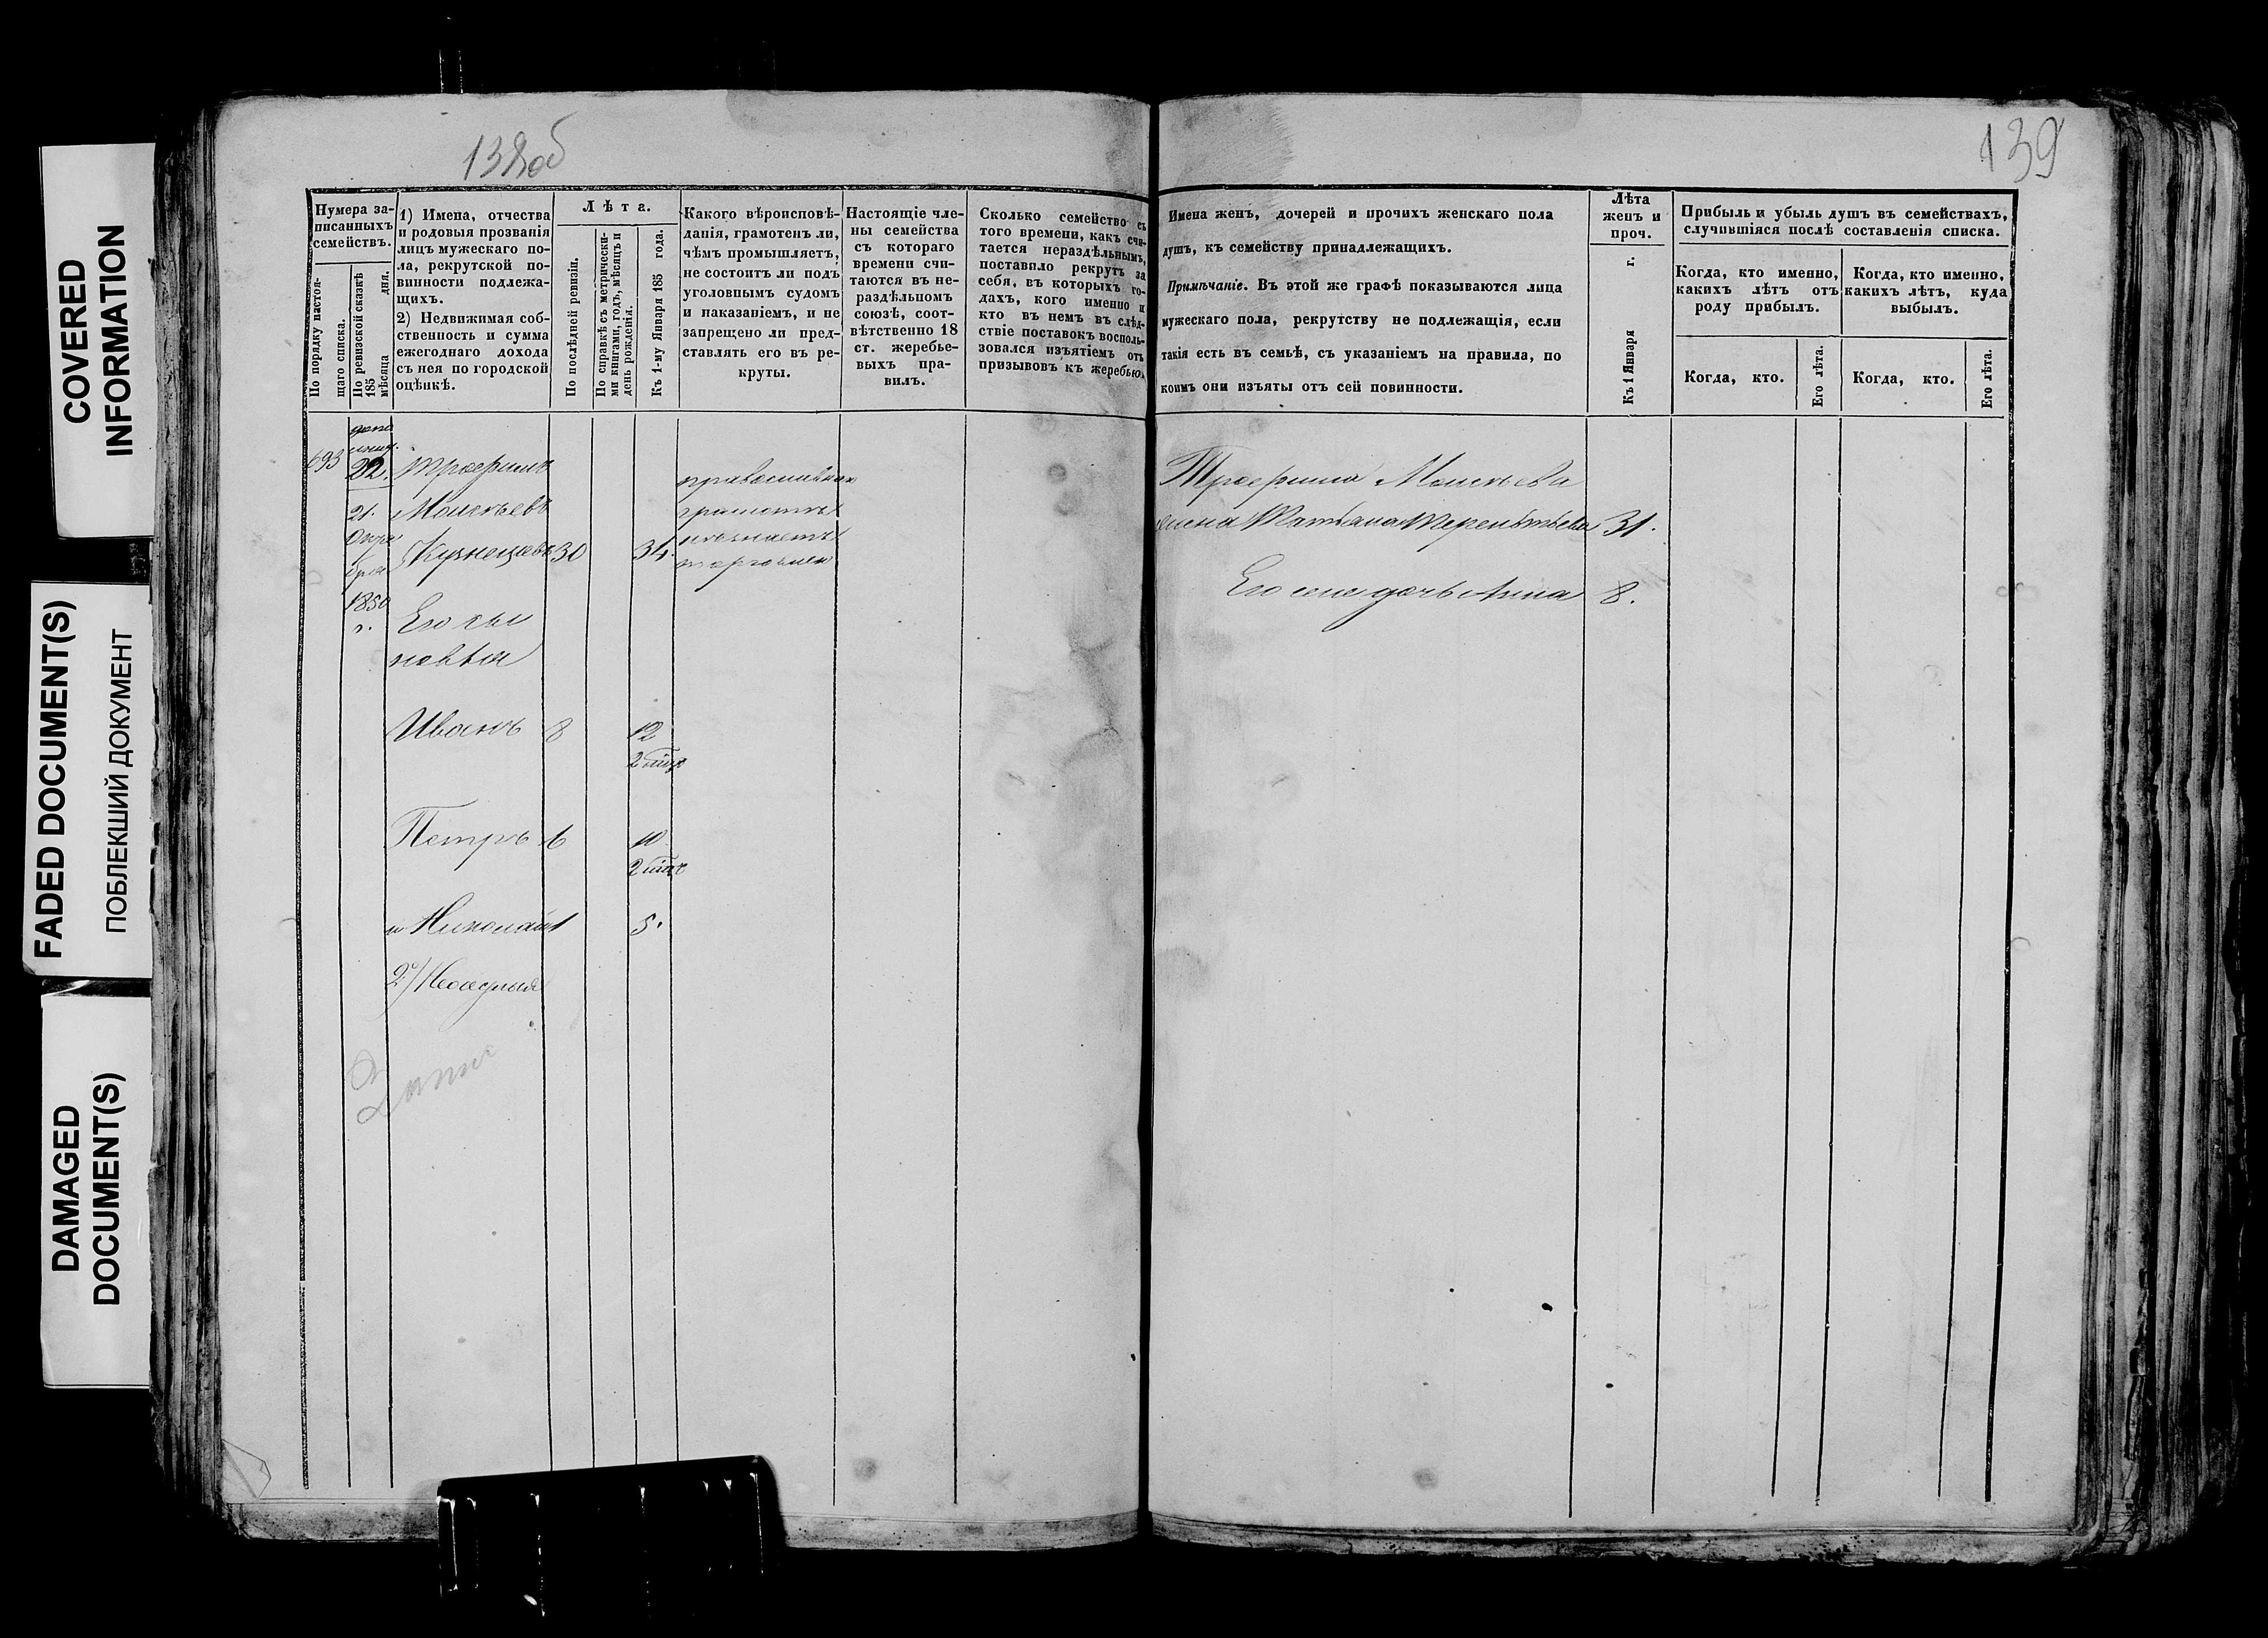 COVERED
INFORMATION
FADED DOCUMENT(S)
ПОБЛЕКШИЙ ДОКУМЕНТ
DAMAGED
DOCUMENT(S)
138об
139
Нумера за-
писанныхъ
семействъ.
По порядку настоя-
щаго списка.
По ревизской сказкѣ
185
мѣсяца дня.
1) Имена, отчества
и родовыя прозванія
лицъ мужескаго по-
ла, рекрутской по-
винности подлежа-
щихъ.
2) Недвижимая соб-
ственность и сумма
ежегоднаго дохода
съ нея по городской
оцѣнкѣ.
Лѣта.
По послѣдней ревизіи.
По справкѣ съ метрически-
ми книгами, годъ, мѣсяцъ и
день рожденія.
Къ 1-му Января 185 года.
Какого вѣроисповѣ-
данія, грамотенъ ли,
чѣмъ промышляетъ,
не состоитъ ли подъ
уголовнымъ судомъ
и наказаніемъ, и не
запрещено ли пред-
ставлять его въ ре-
круты.
Настоящіе чле-
ны семейства
съ котораго
времени счи-
таются въ не-
раздѣльномъ
союзѣ, соот-
вѣтственно 18
ст. жеребье-
выхъ пра-
вилъ.
Сколько семейство съ
того времени, какъ счи-
тается нераздѣльнымъ,
поставило рекрутъ за
себя, въ которыхъ го-
дахъ, кого именно и
кто въ немъ въ слѣд-
ствіе поставокъ восполь-
зовался изъятіемъ отъ
призывовъ къ жеребью.
Имена женъ, дочерей и прочихъ женскаго пола
душъ, къ семейству принадлежащихъ.
Примѣчаніе. Въ этой же графѣ показываются лица
мужескаго пола, рекрутству не подлежащія, если
такія есть въ семьѣ, съ указаніемъ на правила, по
коимъ они изъяты отъ сей повинности.
Лѣта
женъ и
проч.
Къ 1 Января г.
Прибыль и убыль душъ въ семействахъ,
случившіяся послѣ составленія списка.
Когда, кто именно,
какихъ лѣтъ отъ
роду прибылъ.
Когда, кто именно,
какихъ лѣтъ, куда
выбылъ.
Когда, кто.
Его лѣта.
Когда, кто.
Его лѣта.
693
22.
21.
1850
г.
Трофимъ
Моисѣевъ
Кузнецовъ 30 34.
Его сы
новья
Иванъ 8 12
2 мѣс
Петръ 6 10
2 мѣс
и Николай 1 5.
2)
православнаго
грамотѣ
знаетъ
торговлею
Трофима Моисѣева
жена Татьяна Терентьева 31.
Его дочь Анна 8.